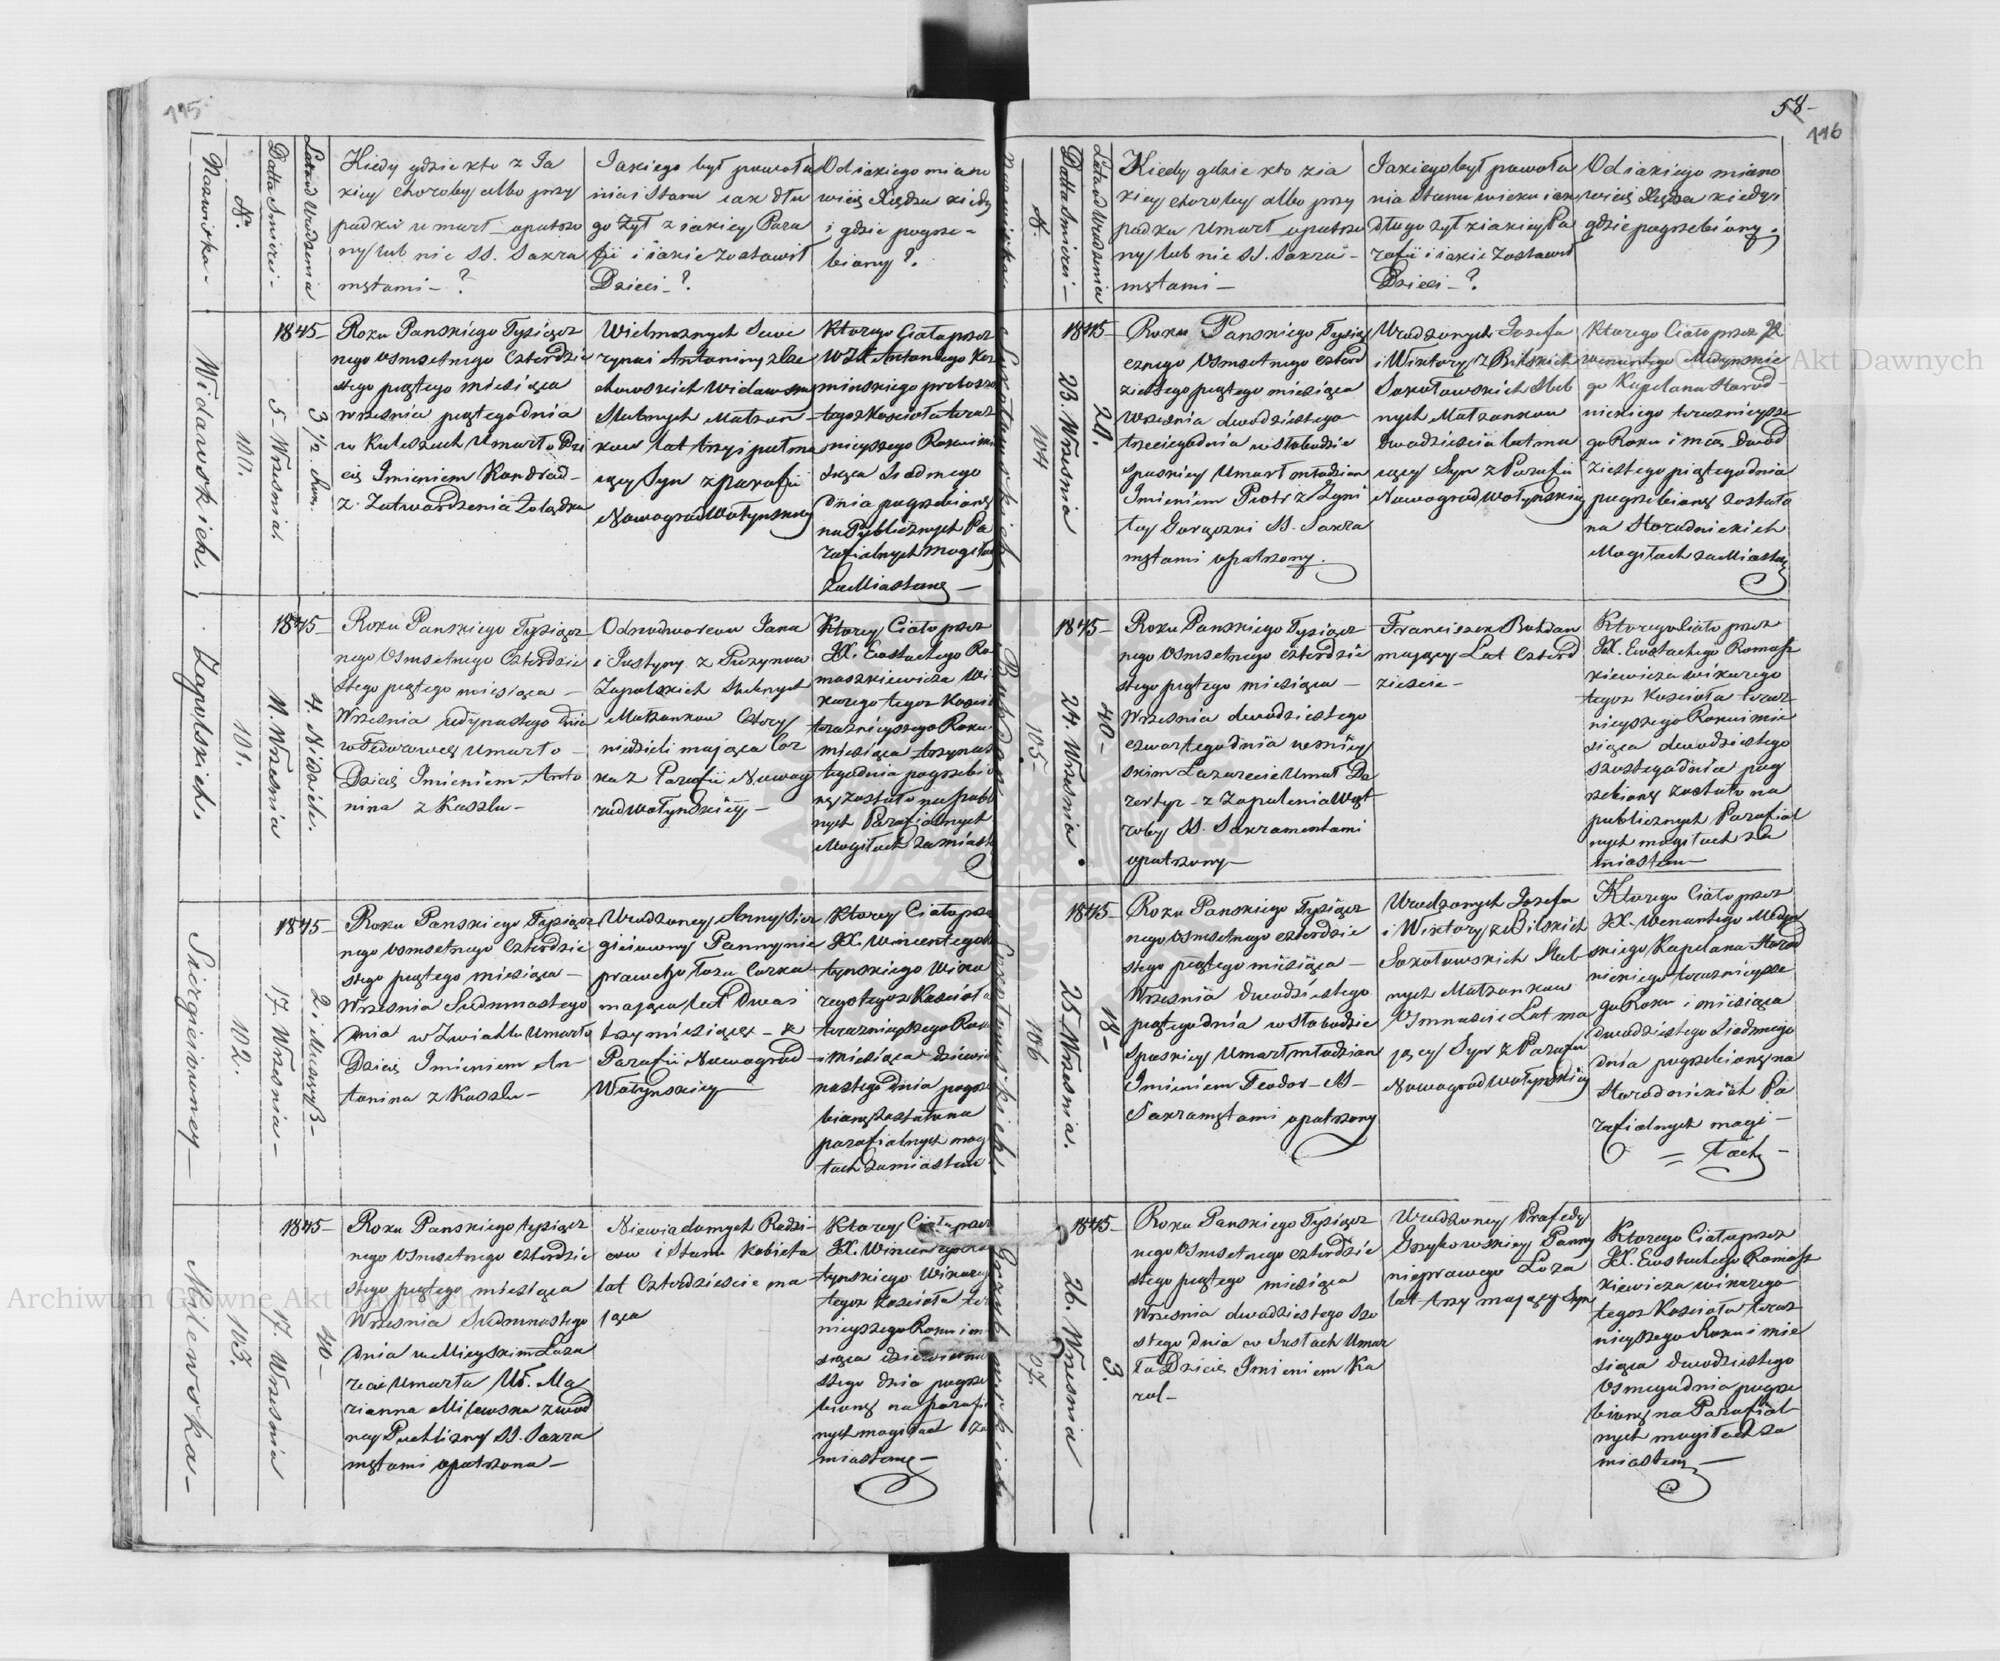 195
Nazwiska.
N.
Datta Smierci.
Lata od Urodzenia
Kiedy gdzie kto z Ja
kiey choroby albo przy
padku umarł opatrzo
ny lub nie SS. Sakra
mętami - ?
Jakiego był powoła
nia i Stanu iak dłu
go Żył z iakiey Para
fii i iakie zostawił
Dzieci - ?
Od iakiego miano
wicię Xiędza kiedy
i gdzie pogrze-
biony ?.
Widawskich.
101.
5 Wrzesnia.
3 1/2
1845-
Roku Panskiego Tysiącz
nego Osmsetnego Czterdzie
stego piątego miesiąca
Wrzesnia piątego dnia
w Kuleszach Umarło Dzi
cię Imieniem Kondrad-
z Zatwardzenia Żołądka
Wielmoznych Sewe
ryna i Antoniny z
Widawskich
Slubnych Małżon-
kow lat trzy i puł ma
iący Syn z parafii
Nowogradwołynskiey
Ktorego Ciało przez
WJX Antoniego Ko
minskiego probosz
tegoz Koscioła teraz
nieyszego Roku i mie
siąca Siódmego
Dnia pogrzebionę
na Publicznych Pa
rafialnych mogiłach
za Miastemę -
Zapolskich.
101.
11. Wrzesnia
4. Niedziele.
1845-
Roku Panskiego Tysiącz
nego Osmsetnego Czterdzie
stego piątego miesiąca -
Wrzesnia iedynastego Dnia
w Fedorowcę Umarło -
Dziecię Imieniem Anto
nina z Kaszlu -
Odnodworcow Jana
i Justyny z Puzynow
Zapolskich Slubnych
Małżonkow Cztery
niedzieli maiąca Cor
ka z Parafii Nowog
radwołynskiey -
Ktorey Ciało przez
JX. Eustachego Ro
maszkiewicza Wi
karego tegoz Koscioł
teraznieyszego Roku
miesiąca trzynas
tego dnia pogrzebio
nę zostało na publi
nych Parafialnych
Mogiłach za miast
Siergieiowney -
102.
17. Wrzesnia -
2 i Miesięcy 3 -
1845-
Roku Panskiego Tysiącz
nego Osmsetnego Czterdzie
stego piątego miesiąca -
Wrzesnia Siedmnastego
Dnia w Zwiahlu Umarło
Dziecię Imieniem An-
tonina z Kaszlu -
Urodzoney Anny Sier
gieiowny Panny nie
prawego Łoża Corka
maiąca lat Dwa i
trzy miesiącę - z
Parafii Nowograd
Wołynskiey
Ktorey Ciało prze
JX. Wincentego
tynskiego Wika
rego tegoz Koscioła
teraznieyszego Roku
i miesiąca dziewię
nastego Dnia pogrze
bionę zostało na
parafialnych mog
iłach za miastem
Milewska -
103.
17. Wrzesnia
40 -
1845-
Roku Panskiego tysiącz
nego Osmsetnego czterdzie
stego piątego miesiąca
Wrzesnia Siedmnastego
Dnia w Mieyskim Laza
recie Umarła Uł. Ma
rianna Milewska z wod
ney Puchliny SS. Sakra
mętami opatrzona -
Niewiadomych Rodzi-
cow i Stanu Kobieta
lat Czterdziescie ma
iąca
Ktorey Ciało przez
JX. Wincentego
tynskiego Wikarego
tegoz Koscioła ter
nieyszego Roku i mie
siąca dziewietna
stego dnia pogrze
bionę na parafi
nych mogiłach za
miastemę -
58-
196
N.
Datta Smierci -
Lata od Urodzenia
Kiedy gdzie kto z ia
kiey choroby albo przy
padku Umarł opatrzo
ny lub nie SS. Sakra -
mętami -
Jakiego był powoła
nia Stanu wieku i iak
długo żył z iakiey Pa
rafii i iakie zostawił
Dzieci - ?
Od iakiego miano
wicię Xiędza kiedy i
gdzie pogrzebiony.
104
23. Wrzesnia
20.
1845-
Roku Panskiego Tysią
cznego Osmsetnego czterd
ziestego piątego miesiąca
Wrzesnia dwodziestego
trzeciego dnia w Słobodzie
Spaskiey Umarł młodzian
Imieniem Piotr z Zgni
łey Gorączki SS. Sakra
mętami opatrzony.
Urodzonych Jozefa
i Wiktoryi z Bilskich
Sokołowskich Slub
nych Małżonkow
Dwadziescia lat ma
iący Syn z Parafii
Nowogradwołynskiey
Ktorego Ciało przez JX
Wenantego Medynskie
go Kapelana Horod-
nickiego teraznieysze
go Roku i mcą Dwod
ziestego piątego dnia
pogrzebionę zostało
na Horodnickich
Mogiłach za Miastem
105 -
24. Wrzesnia.
40 -
1845-
Roku Panskiego Tysiącz
nego Osmsetnego czterdzie
stego piątego miesiąca -
Wrzesnia dwodziestego
czwartego dnia w mięy
skim Lazarecie Umarł De
zertyr - z Zapalenia Wąt
roby SS. Sakramentami
opatrzony -
Franciszek Bohdan
maiący Lat Czterd
ziescie -
Ktorego Ciało przez
JX. Eustachego Romasz
kiewicza Wikarego
tegoz Koscioła teraz
nieyszego Roku i mie
siąca dwodziestego
szostego dnia pog
rzebionę zostało na
publicznych Parafial
nych mogiłach za
miastem -
106
25. Wrzesnia.
18 -
1845-
Roku Panskiego Tysiącz
nego Osmsetnego czterdzie
stego piątego miesiąca -
Wrzesnia dwodziestego
piątego dnia w Słobodzie
Spaskiey Umarł młodzian
Imieniem Teodor - SS -
Sakramętami opatrzony
Urodzonych Jozefa
i Wiktoryi z Bilskich
Sokołowskich Slub-
nych Małżonkow
Osmnascie Lat ma
iący Syn z Parafii
Nowogradwołynskiey
Ktorego Ciało przez
JX. Wenantego Medyn
skiego Kapelana Horod
nickiego teraznieysze
go Roku i miesiąca
dwodziestego Siodmego
dnia pogrzebionę na
Horodnickich Pa
rafialnych mogi -
= łach -
107.
26. Wrzesnia
3.
1845-
Roku Panskiego Tysiącz
nego Osmsetnego czterdzie
stego piątego miesiąca
Wrzesnia dwodziestego szo
stego dnia w Sustach Umar
ło Dziecię Imieniem Ka
rol -
Urodzoney Prafedy
Grzybowskiey Panny
nieprawego Łoża
lat trzy maiący Syn
Ktorego Ciało przez
JX. Eustachego Romasz
kiewicza Wikarego
tegoz Koscioła teraz
nieyszego Roku i mie
siąca dwodziestego
Osmego dnia pogrze
bionę na Parafial-
nych mogiłach za
miastemę -
Archiwum Główne Akt Dawnych